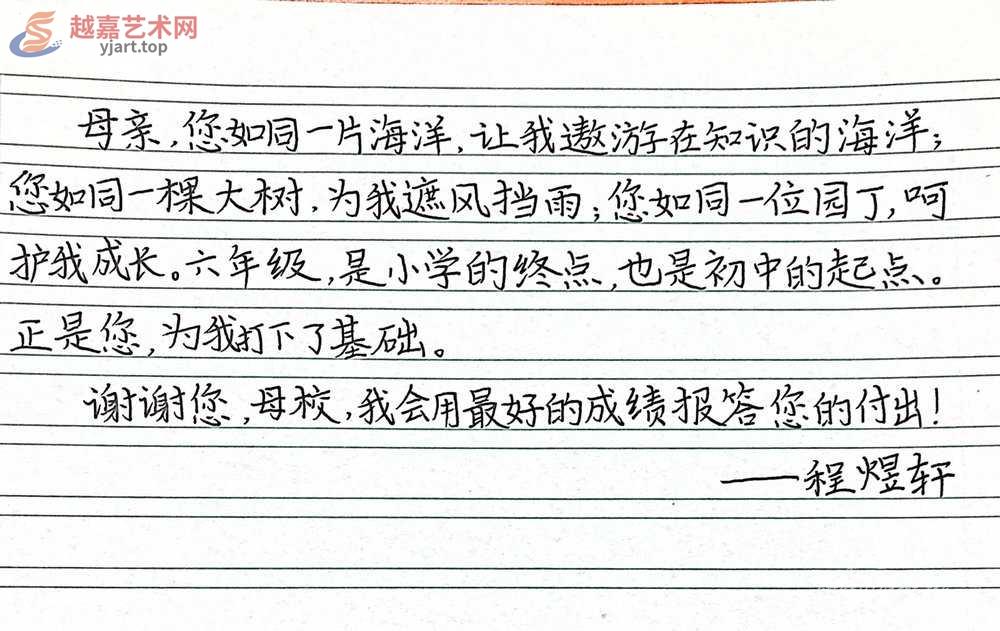 越嘉艺术网
yjart.top
母亲,您如同一片海洋,让我遨游在知识的海洋;
您如同一棵大树,为我遮风挡雨;您如同一位园丁,呵
护我成长。六年级,是小学的终点,也是初中的起点。
正是您,为我打下了基础。
谢谢您,母校,我会用最好的成绩报答您的付出!
——程煜轩